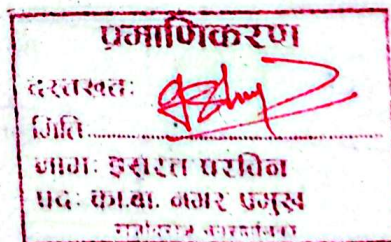 प्रमाणिकरण
दस्तखत:
मिति..............
नाम: इसरत परविन
पद: का.बा. नगर प्रमुख